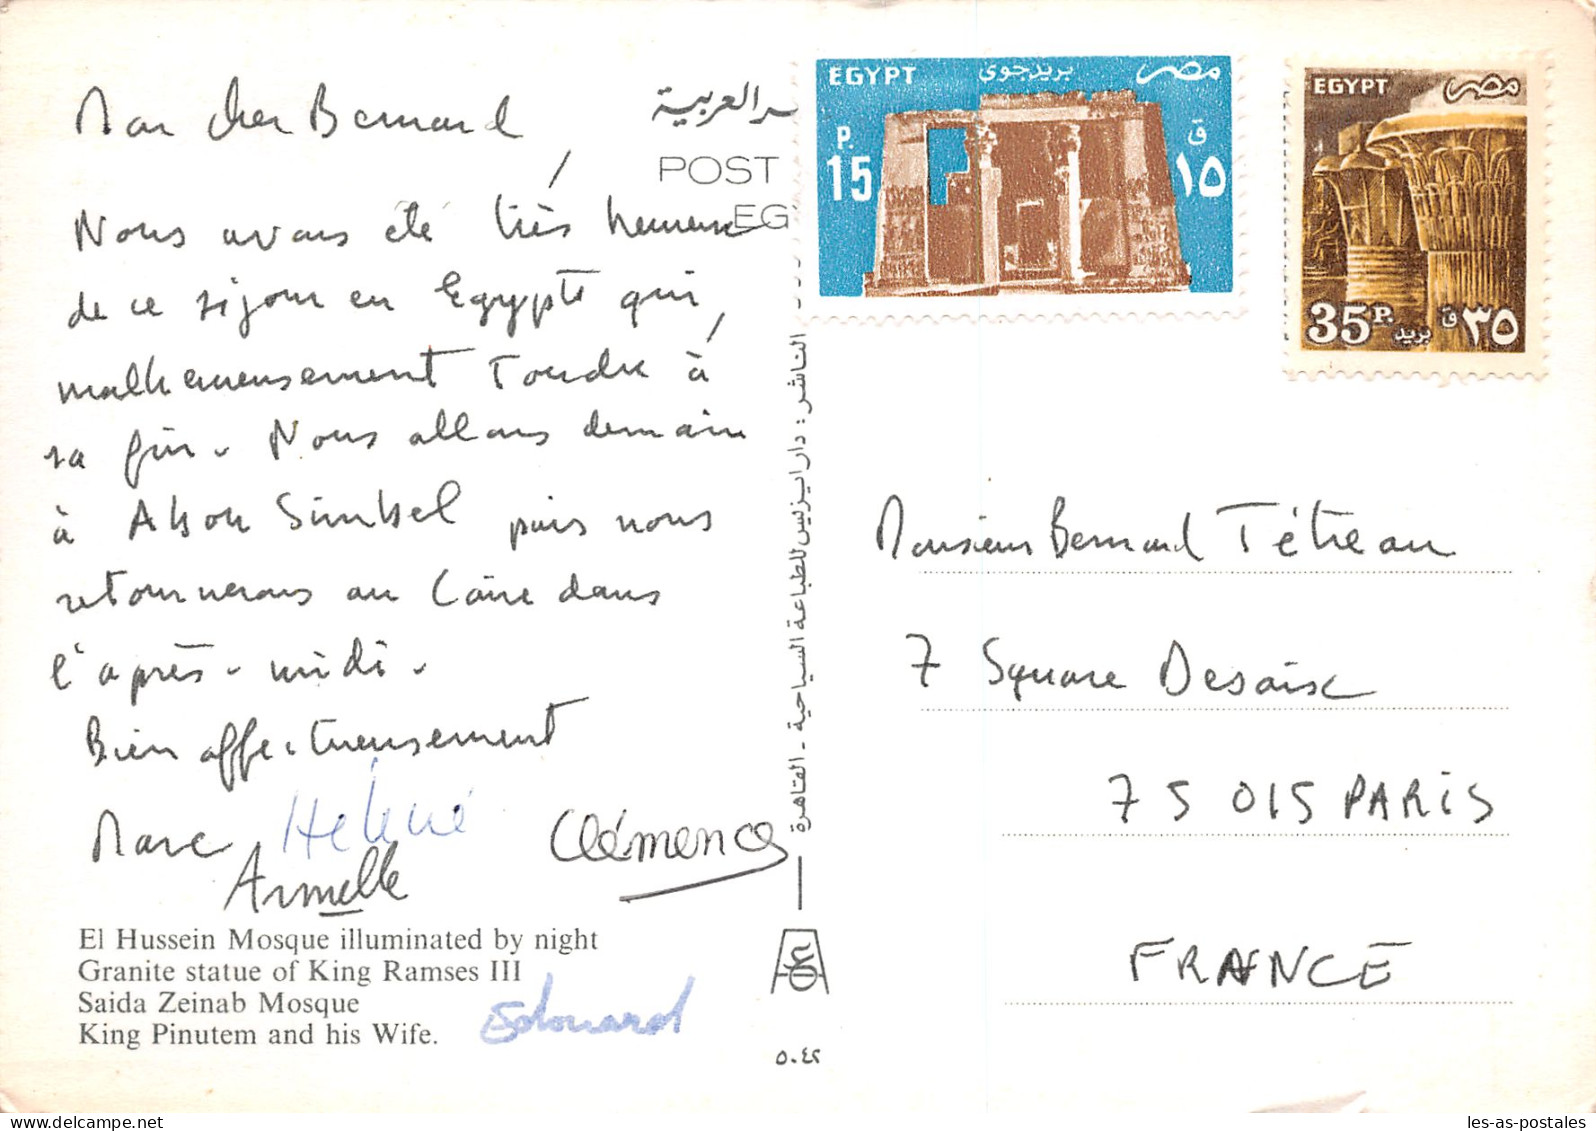 Mon cher Bernard,
Nous avons été très heureux
de ce séjour en Egypte qui,
malheureusement touche à
sa fin. Nous allons demain
à Abou Simbel puis nous
retournerons au Caire dans
l'après-midi.
Bien affectueusement
Marc Hélène
Armelle
Clémence
Edouard
El Hussein Mosque illuminated by night
Granite statue of King Ramses III
Saida Zeinab Mosque
King Pinutem and his Wife.
ـر العربية
POST
EG
EGYPT بريد جوى مصر
P. 15 ق ١٥
EGYPT مصر
35 P. بريد ق ٣٥
الناشر : دار ايزيس للطباعة السياحية - القاهرة
٥٠٤٢
Monsieur Bernard Tétreau
7 Square Desaix
75 015 PARIS
FRANCE
les-as-postales